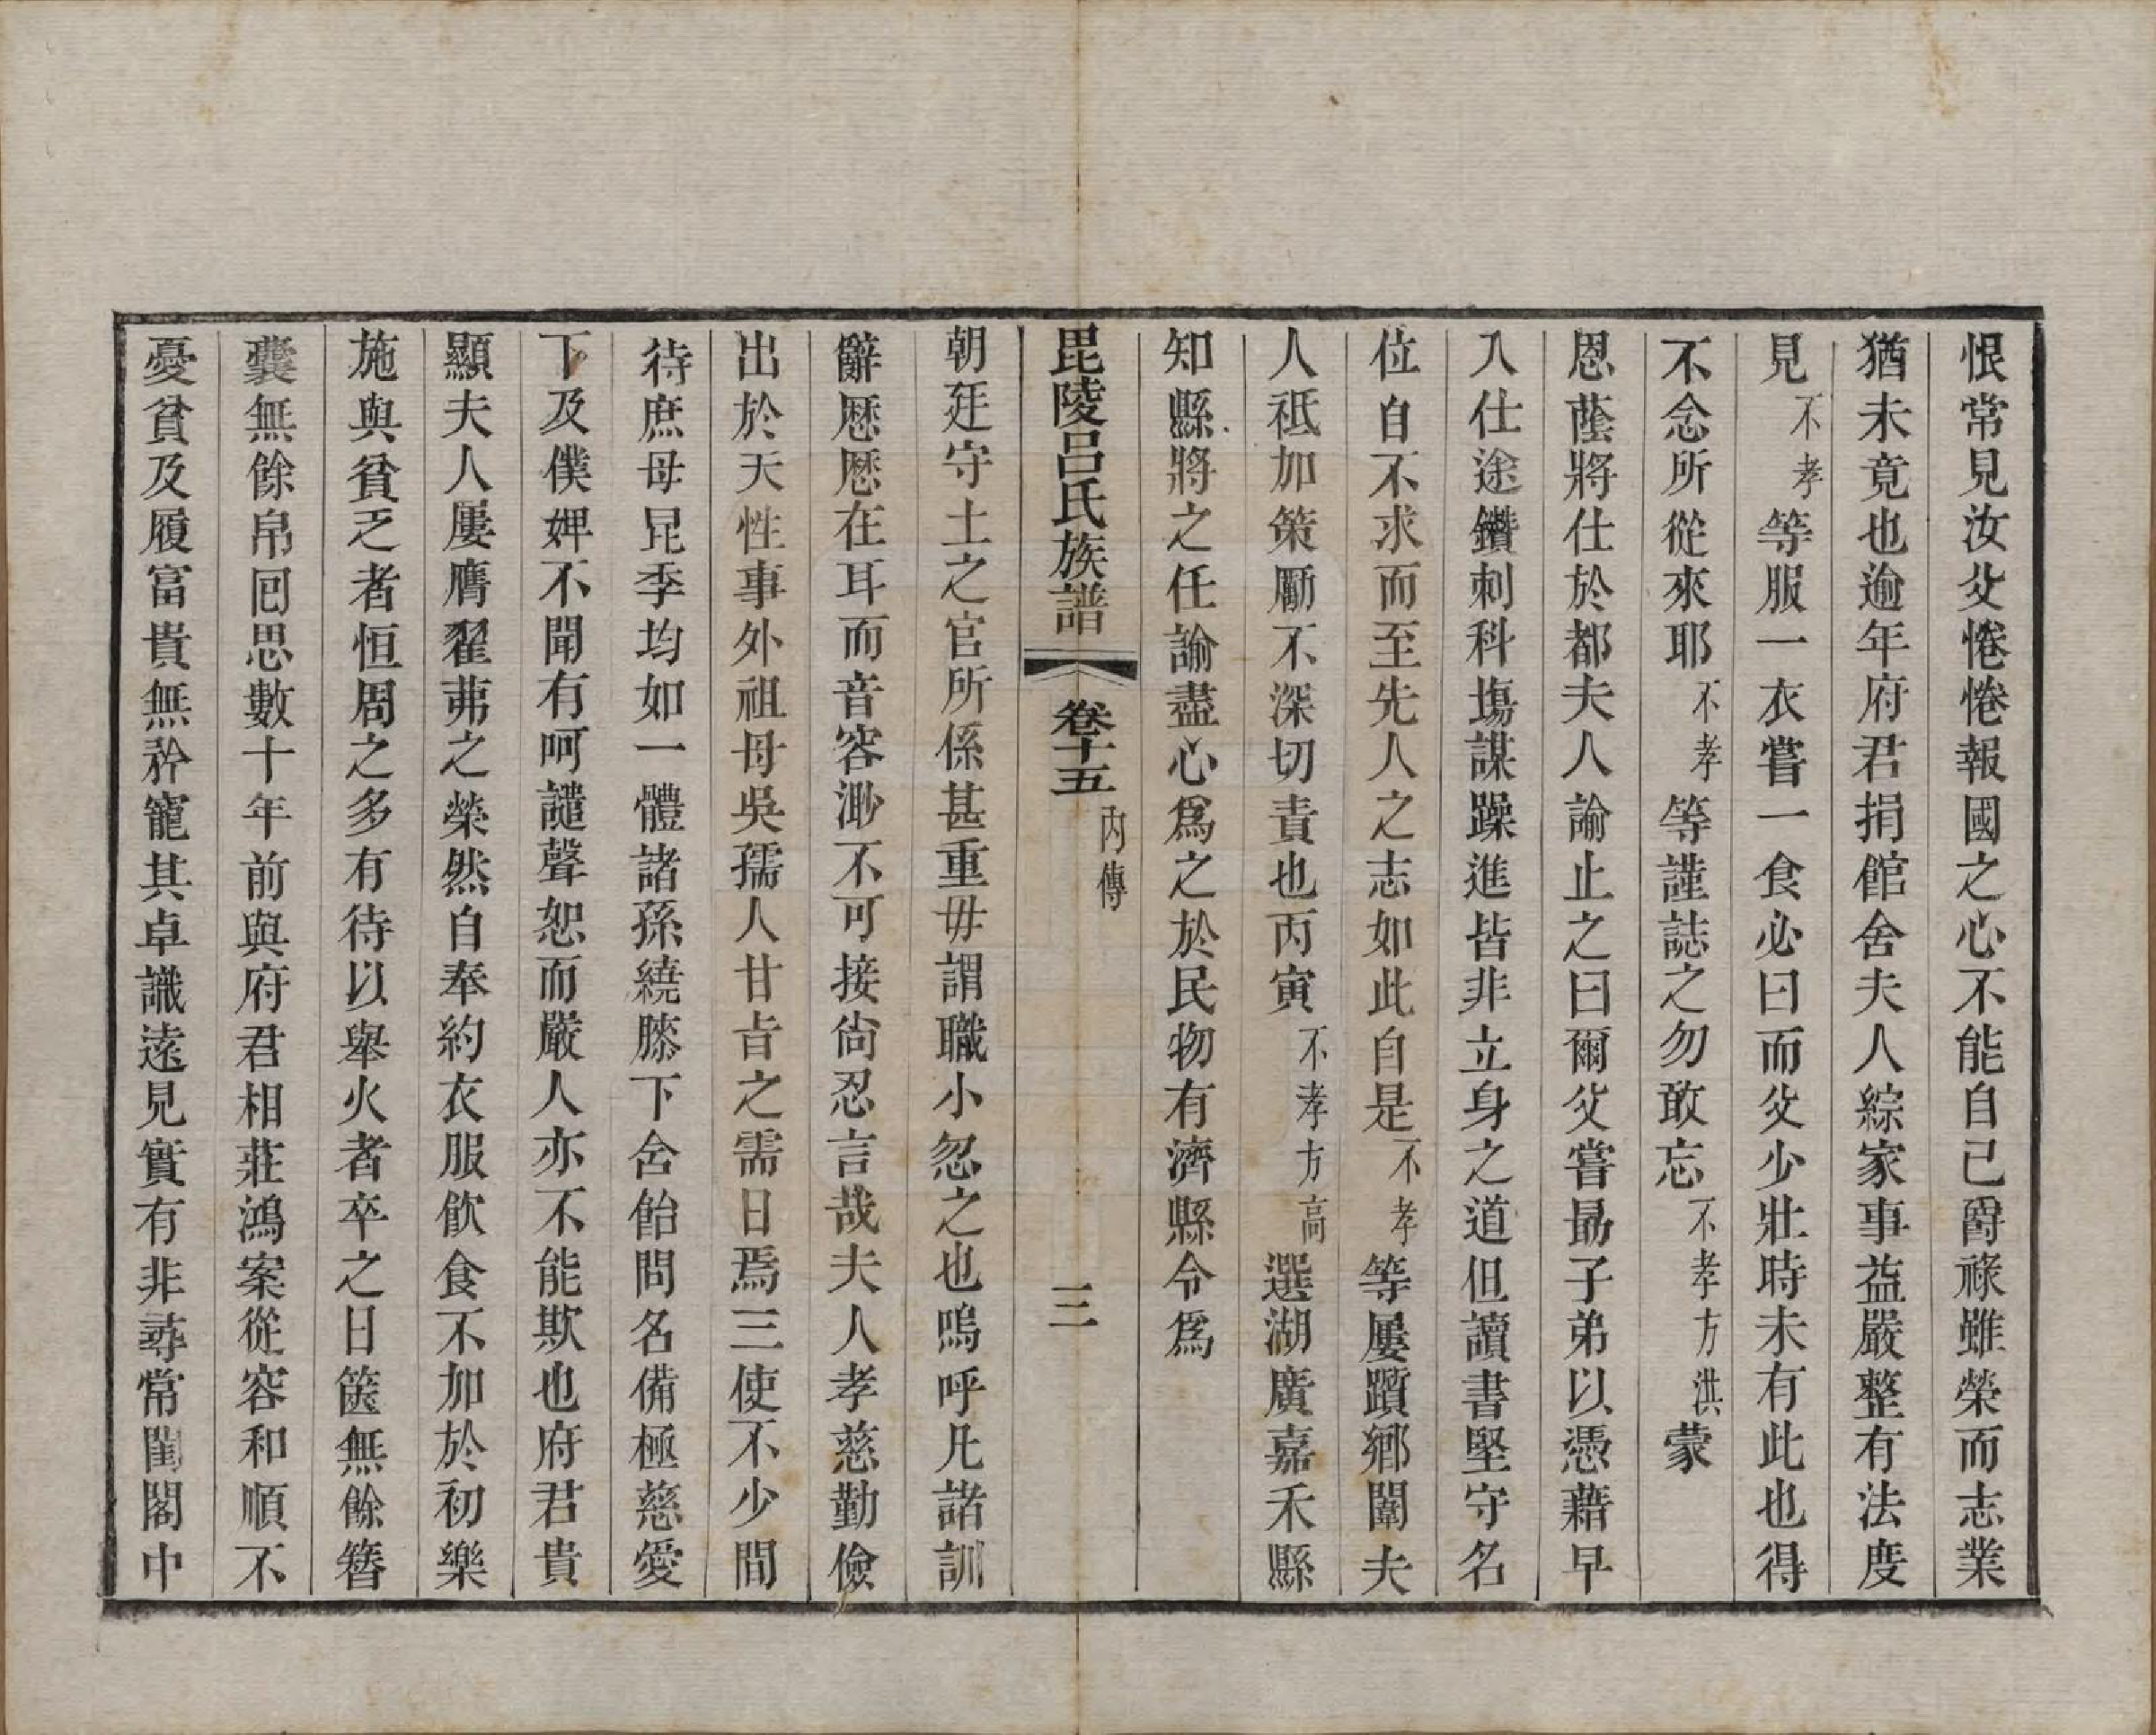 恨常見汝父惓惓報國之心不能自已爵祿雖榮而志業
猶未竟也逾年府君捐館舍夫人綜家事益嚴整有法度
見不孝等服一衣嘗一食必曰而父少壯時未有此也得
不念所從來耶不孝等謹誌之勿敢忘不孝方洪蒙
恩蔭將仕於都夫人諭止之曰爾父嘗勗子弟以憑藉早
入仕途鑽刺科場謀躁進皆非立身之道但讀書堅守名
位自不求而至先人之志如此自是不孝等屢躓鄉闈夫
人祗加策勵不深切責也丙寅不孝方高選湖廣嘉禾縣
知縣將之任諭盡心爲之於民物有濟縣令爲
毘陵呂氏族譜 卷十五 內傳 三
朝廷守土之官所係甚重毋謂職小忽之也嗚呼凡諸訓
辭歷歷在耳而音容渺不可接尙忍言哉夫人孝慈勤儉
出於天性事外祖母吳孺人甘旨之需日焉三使不少間
待庶母昆季均如一體諸孫繞膝下含飴問名備極慈愛
下及僕婢不聞有呵譴聲恕而嚴人亦不能欺也府君貴
顯夫人屢膺翟茀之榮然自奉約衣服飮食不加於初樂
施與貧乏者恒周之多有待以舉火者卒之日篋無餘簪
囊無餘帛囘思數十年前與府君相莊鴻案從容和順不
憂貧及履富貴無矜寵其卓識遠見實有非尋常閨閣中